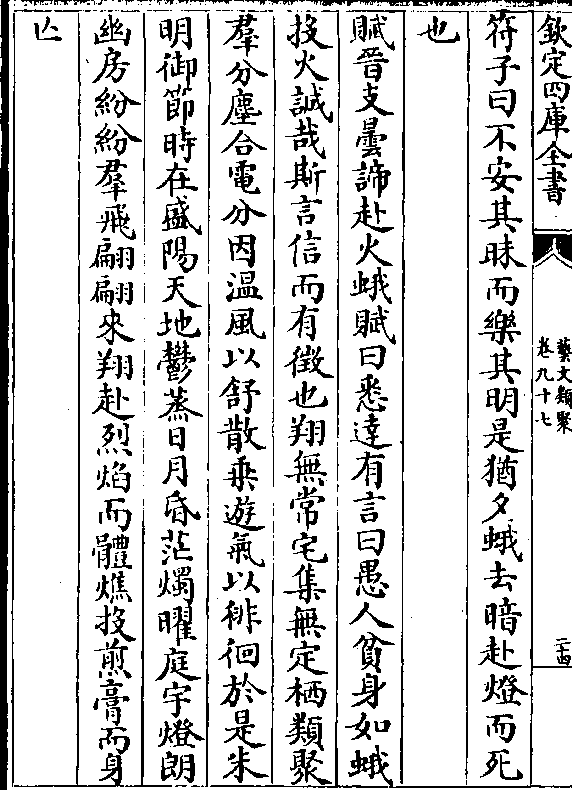 欽定四庫全書
藝文類聚
卷九十七
二十四
符子曰不安其昧而樂其明是猶夕蛾去暗赴燈而死
也
賦晉支曇諦赴火蛾賦曰悉達有言曰愚人貪身如蛾
投火誠哉斯言信而有徵也翔無常宅集無定栖類聚
羣分塵合電分因溫風以舒散乗遊氣以徘徊於是朱
明御節時在盛陽天地鬱蒸日月昏茫燭曜庭宇燈朗
幽房紛紛羣飛翩翩來翔赴烈焰而體燋投煎膏而身
亾